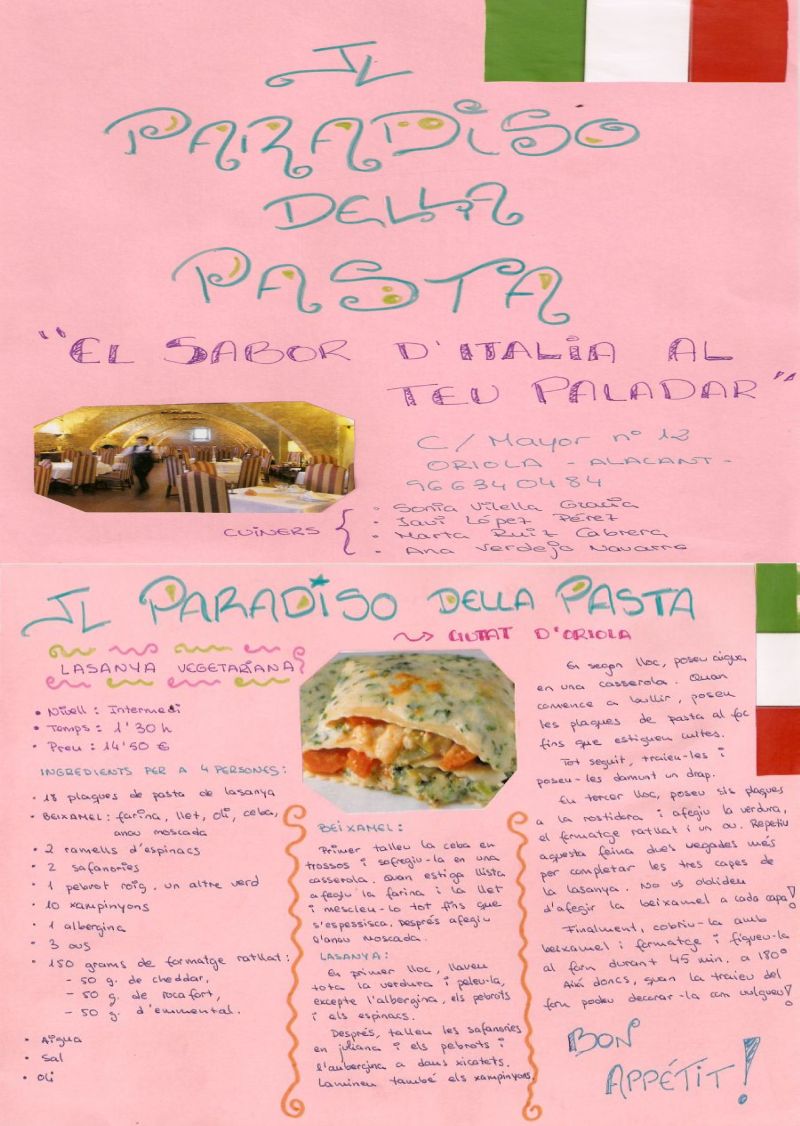 IL
PARADISO
DELLA
PASTA
"EL SABOR D'ITALIA AL
TEU PALADAR"
C/ Mayor nº 12
ORIOLA - ALACANT -
966340484
CUINERS {
· Sonia Vilella Gracia
· Javi López Pérez
· Marta Ruiz Cabrera
· Ana Verdejo Navarro
IL PARADISO DELLA PASTA
CIUTAT D'ORIOLA
LASANYA VEGETARIANA
• Nivell: Intermedi
• Temps: 1'30 h
• Preu: 14'50 €
INGREDIENTS PER A 4 PERSONES:
· 18 plaques de pasta de lasanya
· BEIXAMEL: farina, llet, oli, ceba,
anou moscada
· 2 ramells d'espinacs
· 2 safanories
· 1 pebrot roig. un altre verd
· 10 xampinyons
· 1 albergina
· 3 ous
· 150 grams de formatge ratllat:
- 50 g. de cheddar,
- 50 g. de rocafort,
- 50 g. d'emmental.
· Aigua
· Sal
· Oli
BEIXAMEL:
Primer talleu la ceba en
trossos i sofregiu-la en una
casserola. Quan estiga llista
afegiu la farina i la llet
i mescleu-la tot fins que
s'espessisca. Després afegiu
l'anou Moscada.
LASANYA:
En primer lloc, llaveu
tota la verdura i peleu-la,
excepte l'albergina, els pebrots
i els espinacs.
Després, talleu les safanories
en juliana i els pebrots i
l'aubergina a daus xicotets.
Lamineu també els xampinyons.
En segon lloc, poseu aigua
en una casserola. Quan
comence a bullir, poseu
les plaques de pasta al foc
fins que estiguen cuites.
Tot seguit, traieu-les i
poseu-les damunt un drap.
En tercer lloc, poseu sis plaques
a la rostidora i afegiu la verdura,
el formatge ratllat i un ou. Repetiu
aquesta feina dues vegades més
per completar les tres capes de
la lasanya. No us oblideu
d'afegir la beixamel a cada capa!
Finalment, cobriu-la amb
beixamel i formatge i fiqueu-la
al forn durant 45 min. a 180º
Així doncs, quan la traieu del
forn podeu decorar-la com vulgueu!
BON
APPÉTIT!